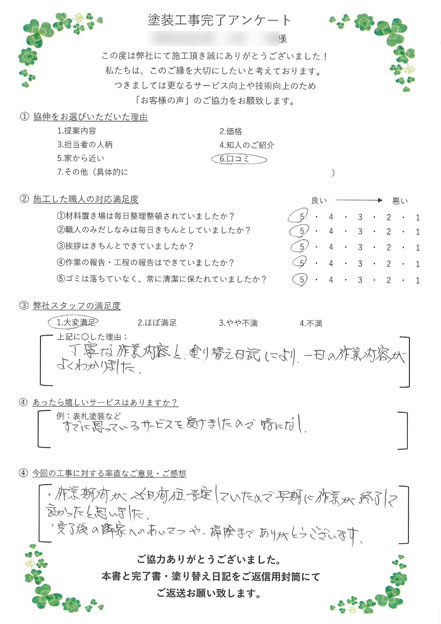 塗装工事完了アンケート
様
この度は弊社にて施工頂き誠にありがとうございました！
私たちは、このご縁を大切にしたいと考えております。
つきましては更なるサービス向上や技術向上のため
「お客様の声」のご協力をお願致します。
① 協伸をお選びいただいた理由
1.提案内容 2.価格
3.担当者の人柄 4.知人のご紹介
5.家から近い 6.口コミ
7.その他（具体的に ）
② 施工した職人の対応満足度 良い 悪い
①材料置き場は毎日整理整頓されていましたか？ 5・4・3・2・1
②職人のみだしなみは毎日きちんとしていましたか？ 5・4・3・2・1
③挨拶はきちんとできていましたか？ 5・4・3・2・1
④作業の報告・工程の報告はできていましたか？ 5・4・3・2・1
⑤ゴミは落ちていなく、常に清潔に保たれていましたか？ 5・4・3・2・1
③ 弊社スタッフの満足度
1.大変満足 2.ほぼ満足 3.やや不満 4.不満
上記に〇した理由：
丁寧な作業内容と、塗り替え日記により、一日の作業内容が
よくわかりました。
④ あったら嬉しいサービスはありますか？
例：表札塗装など
すでに思っているサービスを受けましたので特になし。
④ 今回の工事に対する率直なご意見・ご感想
・作業期間が 日間位 定していたので早期に作業が終了して
良かったと思いました。
・完了後の隣家へのあいさつや、掃除までありがとうございます。
ご協力ありがとうございました。
本書と完了書・塗り替え日記をご返信用封筒にて
ご返送お願い致します。